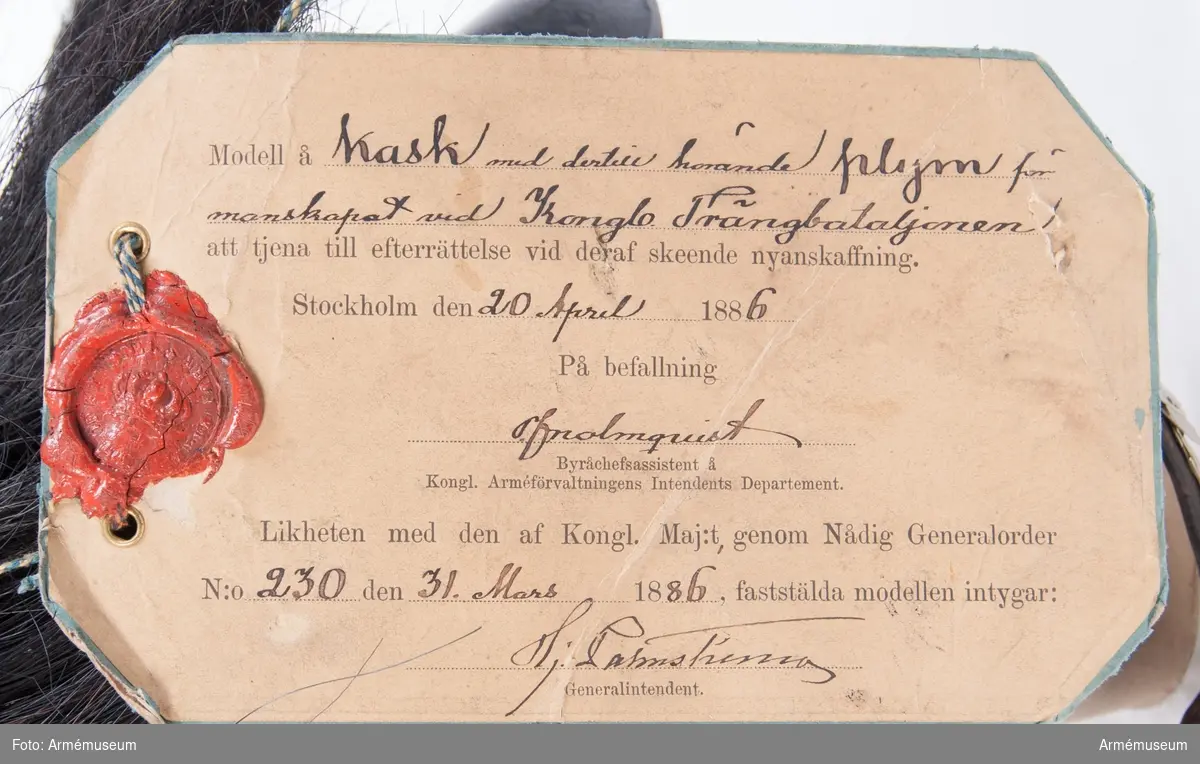 Modell å Kask med dertill hörande plym för
manskapet vid Kongl. Trängbataljonen
att tjena till efterrättelse vid deraf skeende nyanskaffning.
Stockholm den 20 April 1886
På befallning
Holmquist
Byråchefsassistent å
Kongl. Arméförvaltningens Intendents Departement.
Likheten med den af Kongl. Maj:t, genom Nådig Generalorder
N:o 230 den 31. Mars 1886, faststälda modellen intygar:
Hj. Palmstierna
Generalintendent.
Foto: Armémuseum
Armémuseum